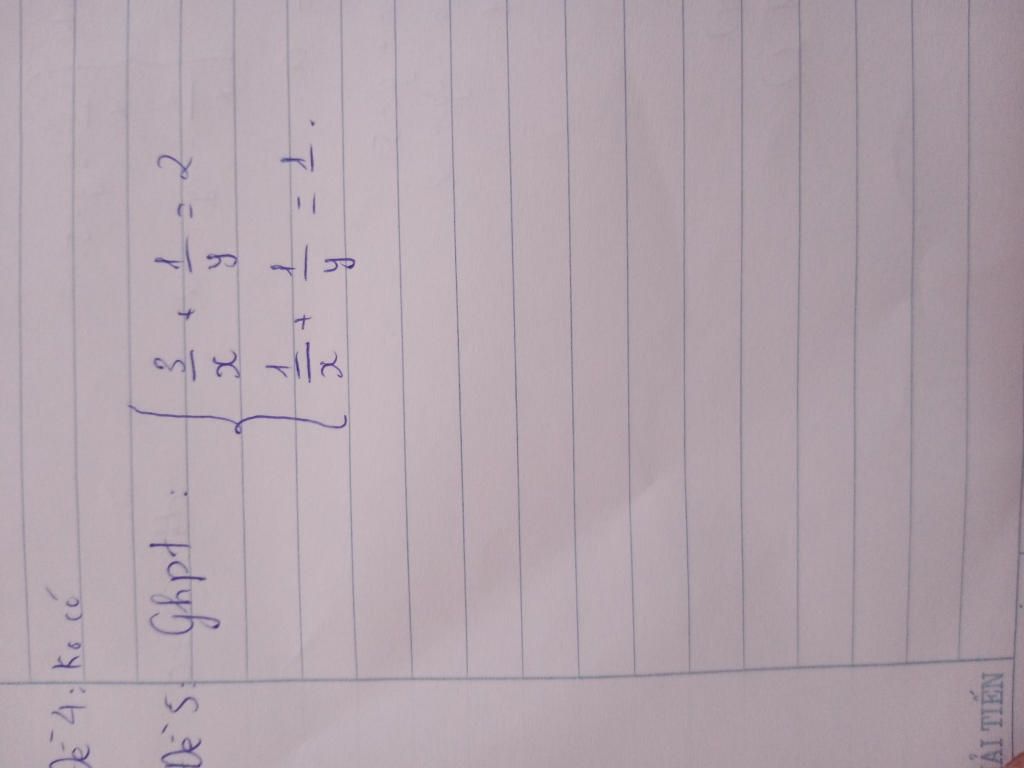 Đề 4: Ko có
Đề 5: Ghpt:
{ 3/x + 1/y = 2
1/x + 1/y = 1.
ẢI TIẾN